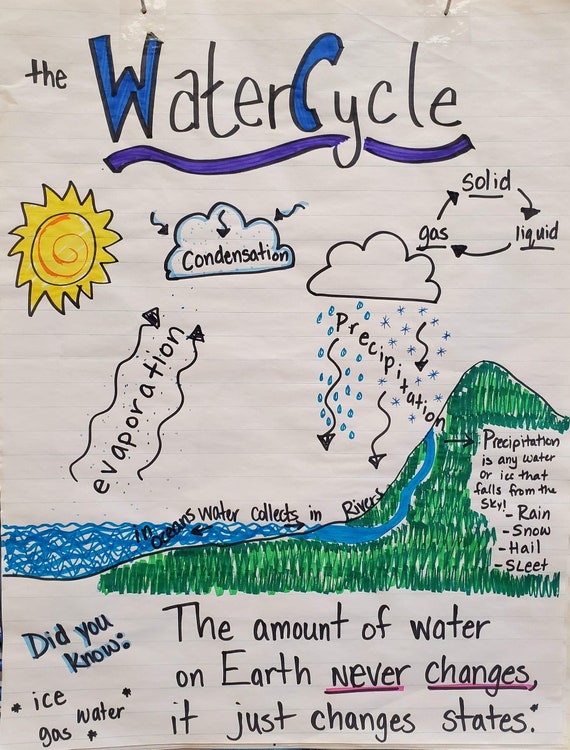 the Water Cycle
solid
gas
liquid
Condensation
Precipitation
evaporation
Precipitation
is any water
or ice that
falls from the
sky!
- Rain
- Snow
- Hail
- Sleet
in oceans Water collects in Rivers
Did you
know:
* ice
water *
gas *
The amount of water
on Earth never changes,
it just changes states.